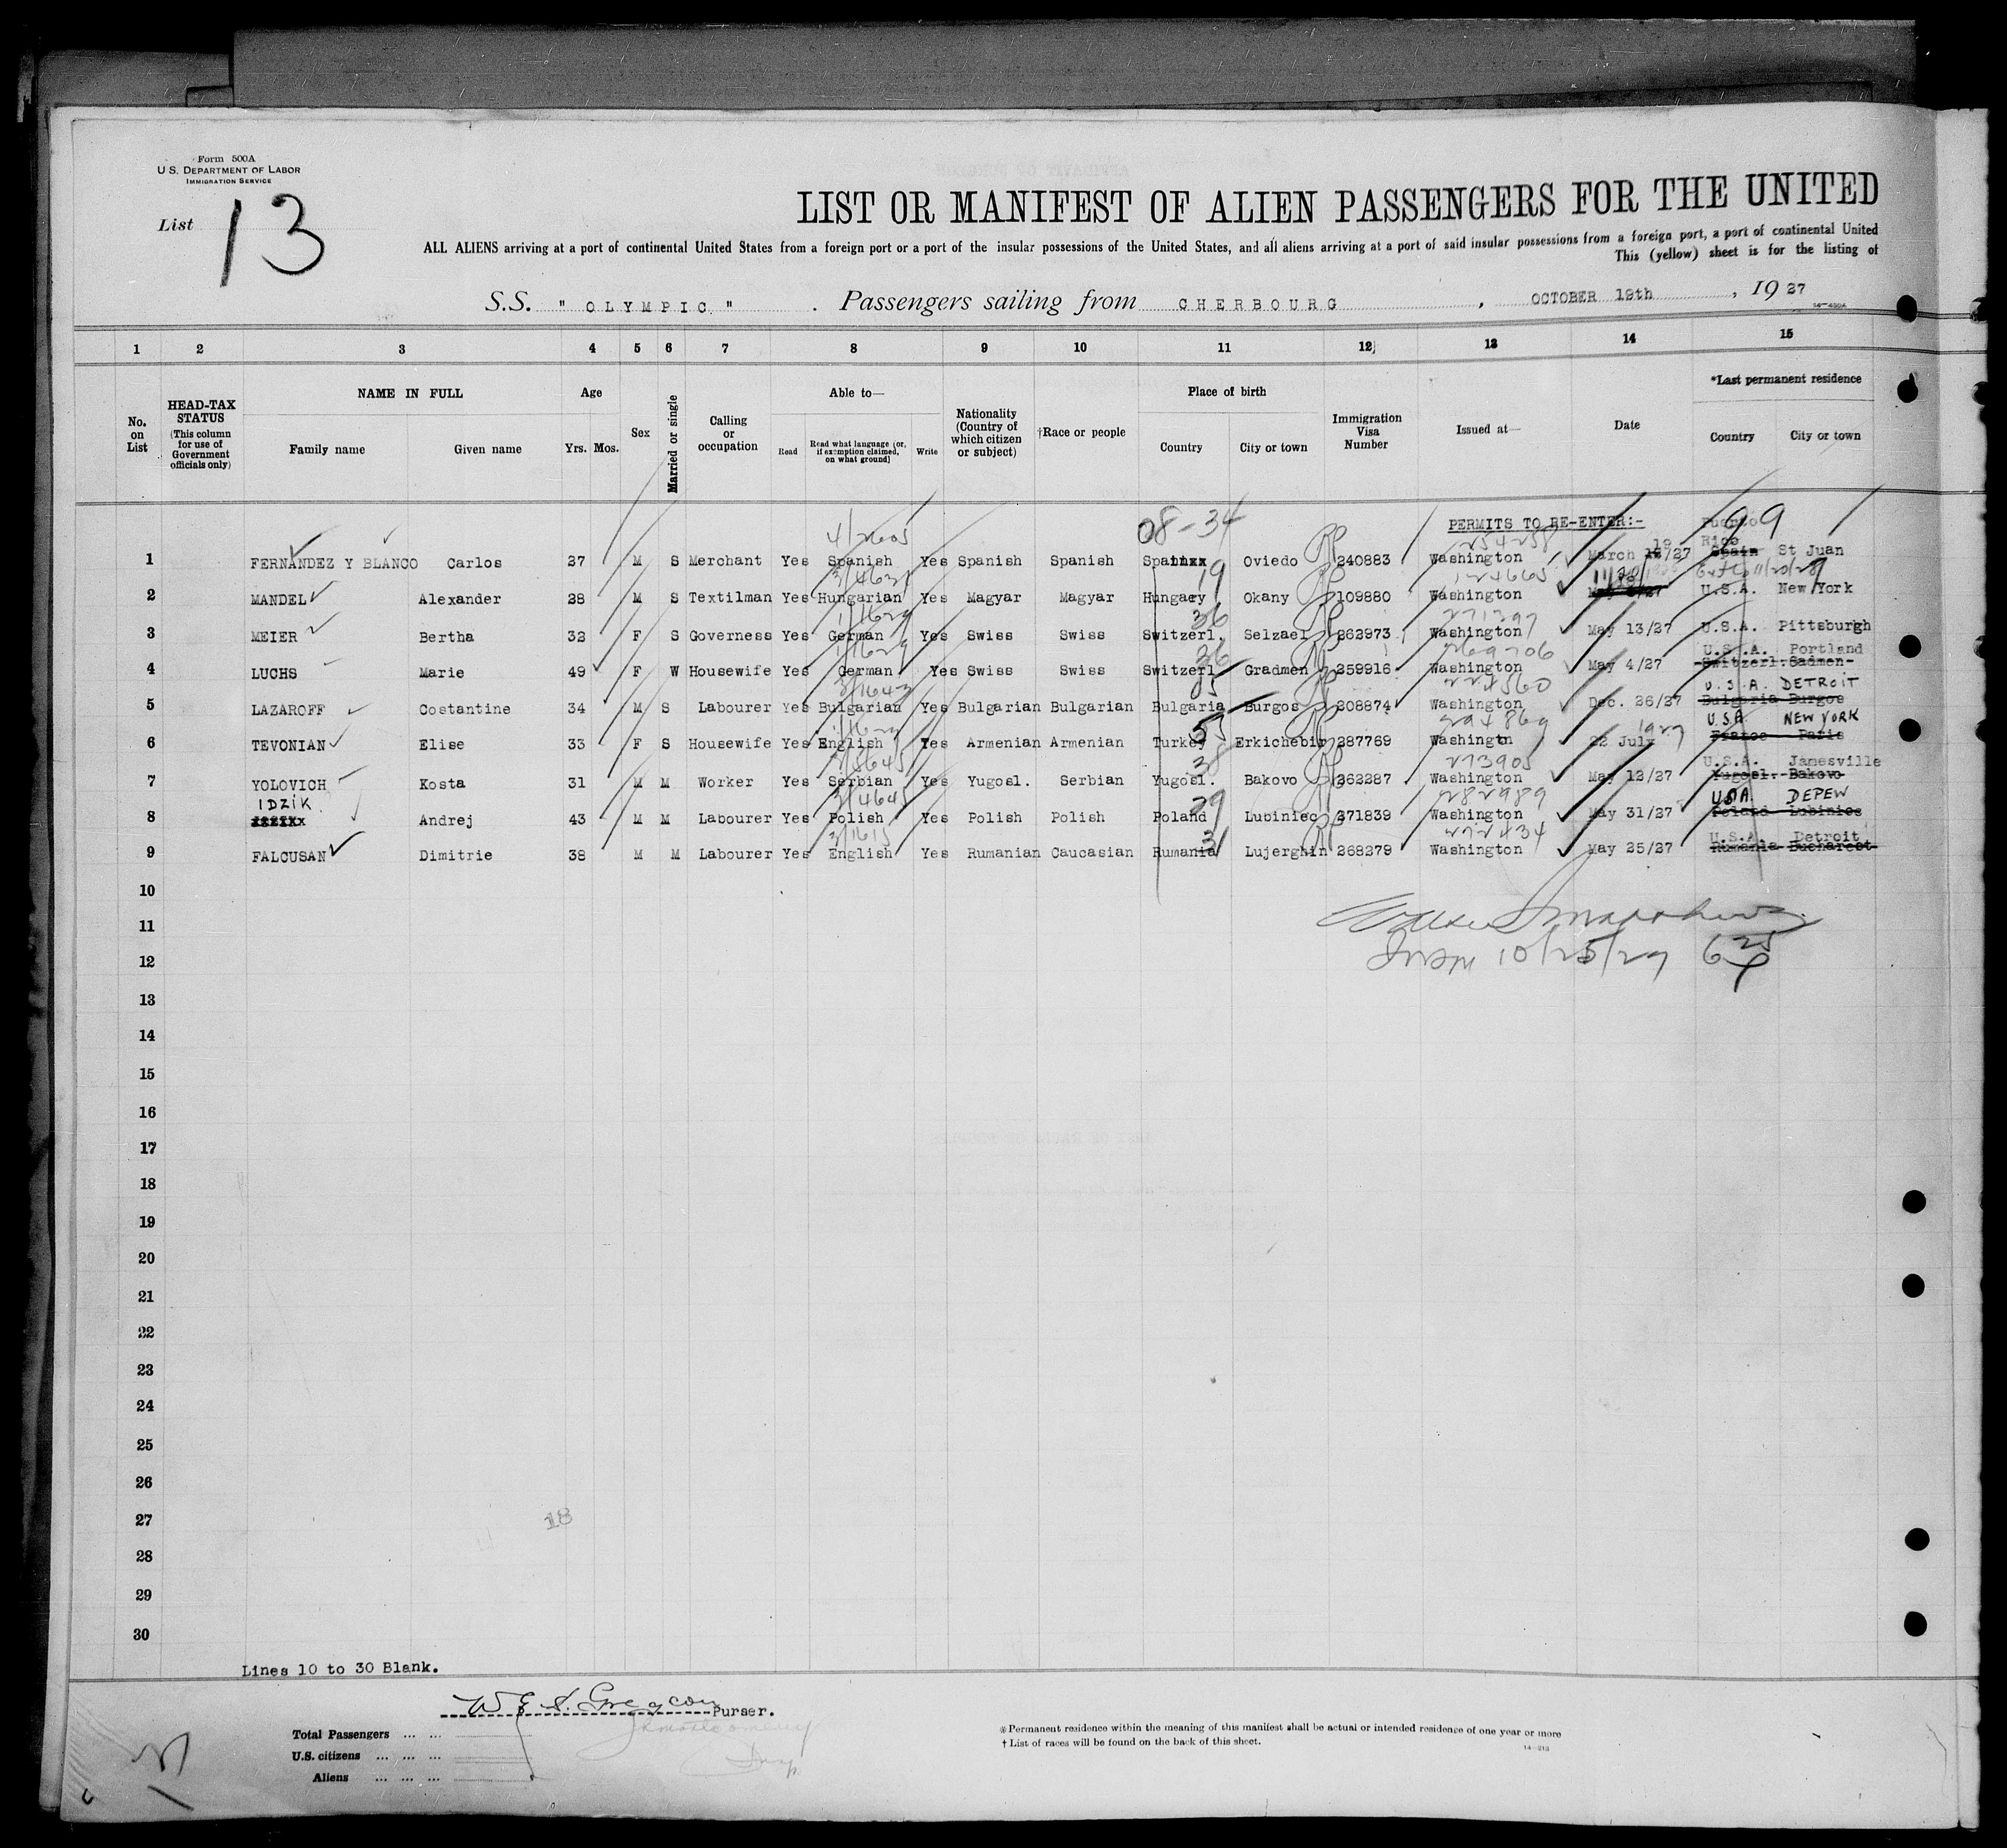 Form 500A
U.S. DEPARTMENT OF LABOR
IMMIGRATION SERVICE
List 13
LIST OR MANIFEST OF ALIEN PASSENGERS FOR THE UNITED
ALL ALIENS arriving at a port of continental United States from a foreign port or a port of the insular possessions of the United States, and all aliens arriving at a port of said insular possessions from a foreign port, a port of continental United
This (yellow) sheet is for the listing of
S.S. " OLYMPIC " . Passengers sailing from CHERBOURG , OCTOBER 19th , 19 27
1 2 3 4 5 6 7 8 9 10 11 12 13 14 15
No. on List HEAD-TAX STATUS (This column for use of Government officials only) NAME IN FULL Family name Given name Age Yrs. Mos. Sex Married or single Calling or occupation Able to— Read Read what language (or, if exemption claimed, on what ground) Write Nationality (Country of which citizen or subject) †Race or people Place of birth Country City or town Immigration Visa Number Issued at— Date *Last permanent residence Country City or town
08-34 PERMITS TO RE-ENTER:- Puerto 99
4/2605 254258 19 Rico
1 FERNANDEZ Y BLANCO Carlos 27 M S Merchant Yes Spanish Yes Spanish Spanish Spain Oviedo 240883 Washington March 12/27 Spain St Juan
19 124665 11/20/28
2 MANDEL Alexander 28 M S Textilman Yes Hungarian Yes Magyar Magyar Hungary Okany 109880 Washington U.S.A. New York
1/1629 36 271297
3 MEIER Bertha 32 F S Governess Yes German Yes Swiss Swiss Switzerl. Selzael 262973 Washington May 13/27 U.S.A. Pittsburgh
1/1629 36 269706 U.S.A. Portland
4 LUCHS Marie 49 F W Housewife Yes German Yes Swiss Swiss Switzerl Gradmen 259916 Washington May 4/27 Switzerl. Sadmen
05 224560 U.S.A. DETROIT
5 LAZAROFF Costantine 34 M S Labourer Yes Bulgarian Yes Bulgarian Bulgarian Bulgaria Burgos 208874 Washington Dec. 26/27 Bulgaria Burgos
1/1629 55 294869 1927 U.S.A. NEW YORK
6 TEVONIAN Elise 33 F S Housewife Yes English Yes Armenian Armenian Turkey Erkichebir 287769 Washingtn 22 July France Paris
38 273905 U.S.A. Jamesville
7 YOLOVICH Kosta 31 M M Worker Yes Serbian Yes Yugosl. Serbian Yugosl. Bakovo 262287 Washington May 12/27 Yugosl. Bakovo
IDZIK 29 282989 USA. DEPEW
8 Andrej 43 M M Labourer Yes Polish Yes Polish Polish Poland Lubiniec 271839 Washington May 31/27 Poland Lubiniec
31 272434 U.S.A. Detroit
9 FALCUSAN Dimitrie 38 M M Labourer Yes English Yes Rumanian Caucasian Rumania Lujerghin 268279 Washington May 25/27 Rumania Bucharest
10
11
12 10/25/27
13
14
15
16
17
18
19
20
21
22
23
24
25
26
27 18
28
29
30
Lines 10 to 30 Blank.
Purser.
Total Passengers ... ...
U.S. citizens ... ... ...
Aliens ... ... ...
* Permanent residence within the meaning of this manifest shall be actual or intended residence of one year or more
† List of races will be found on the back of this sheet.
14—213